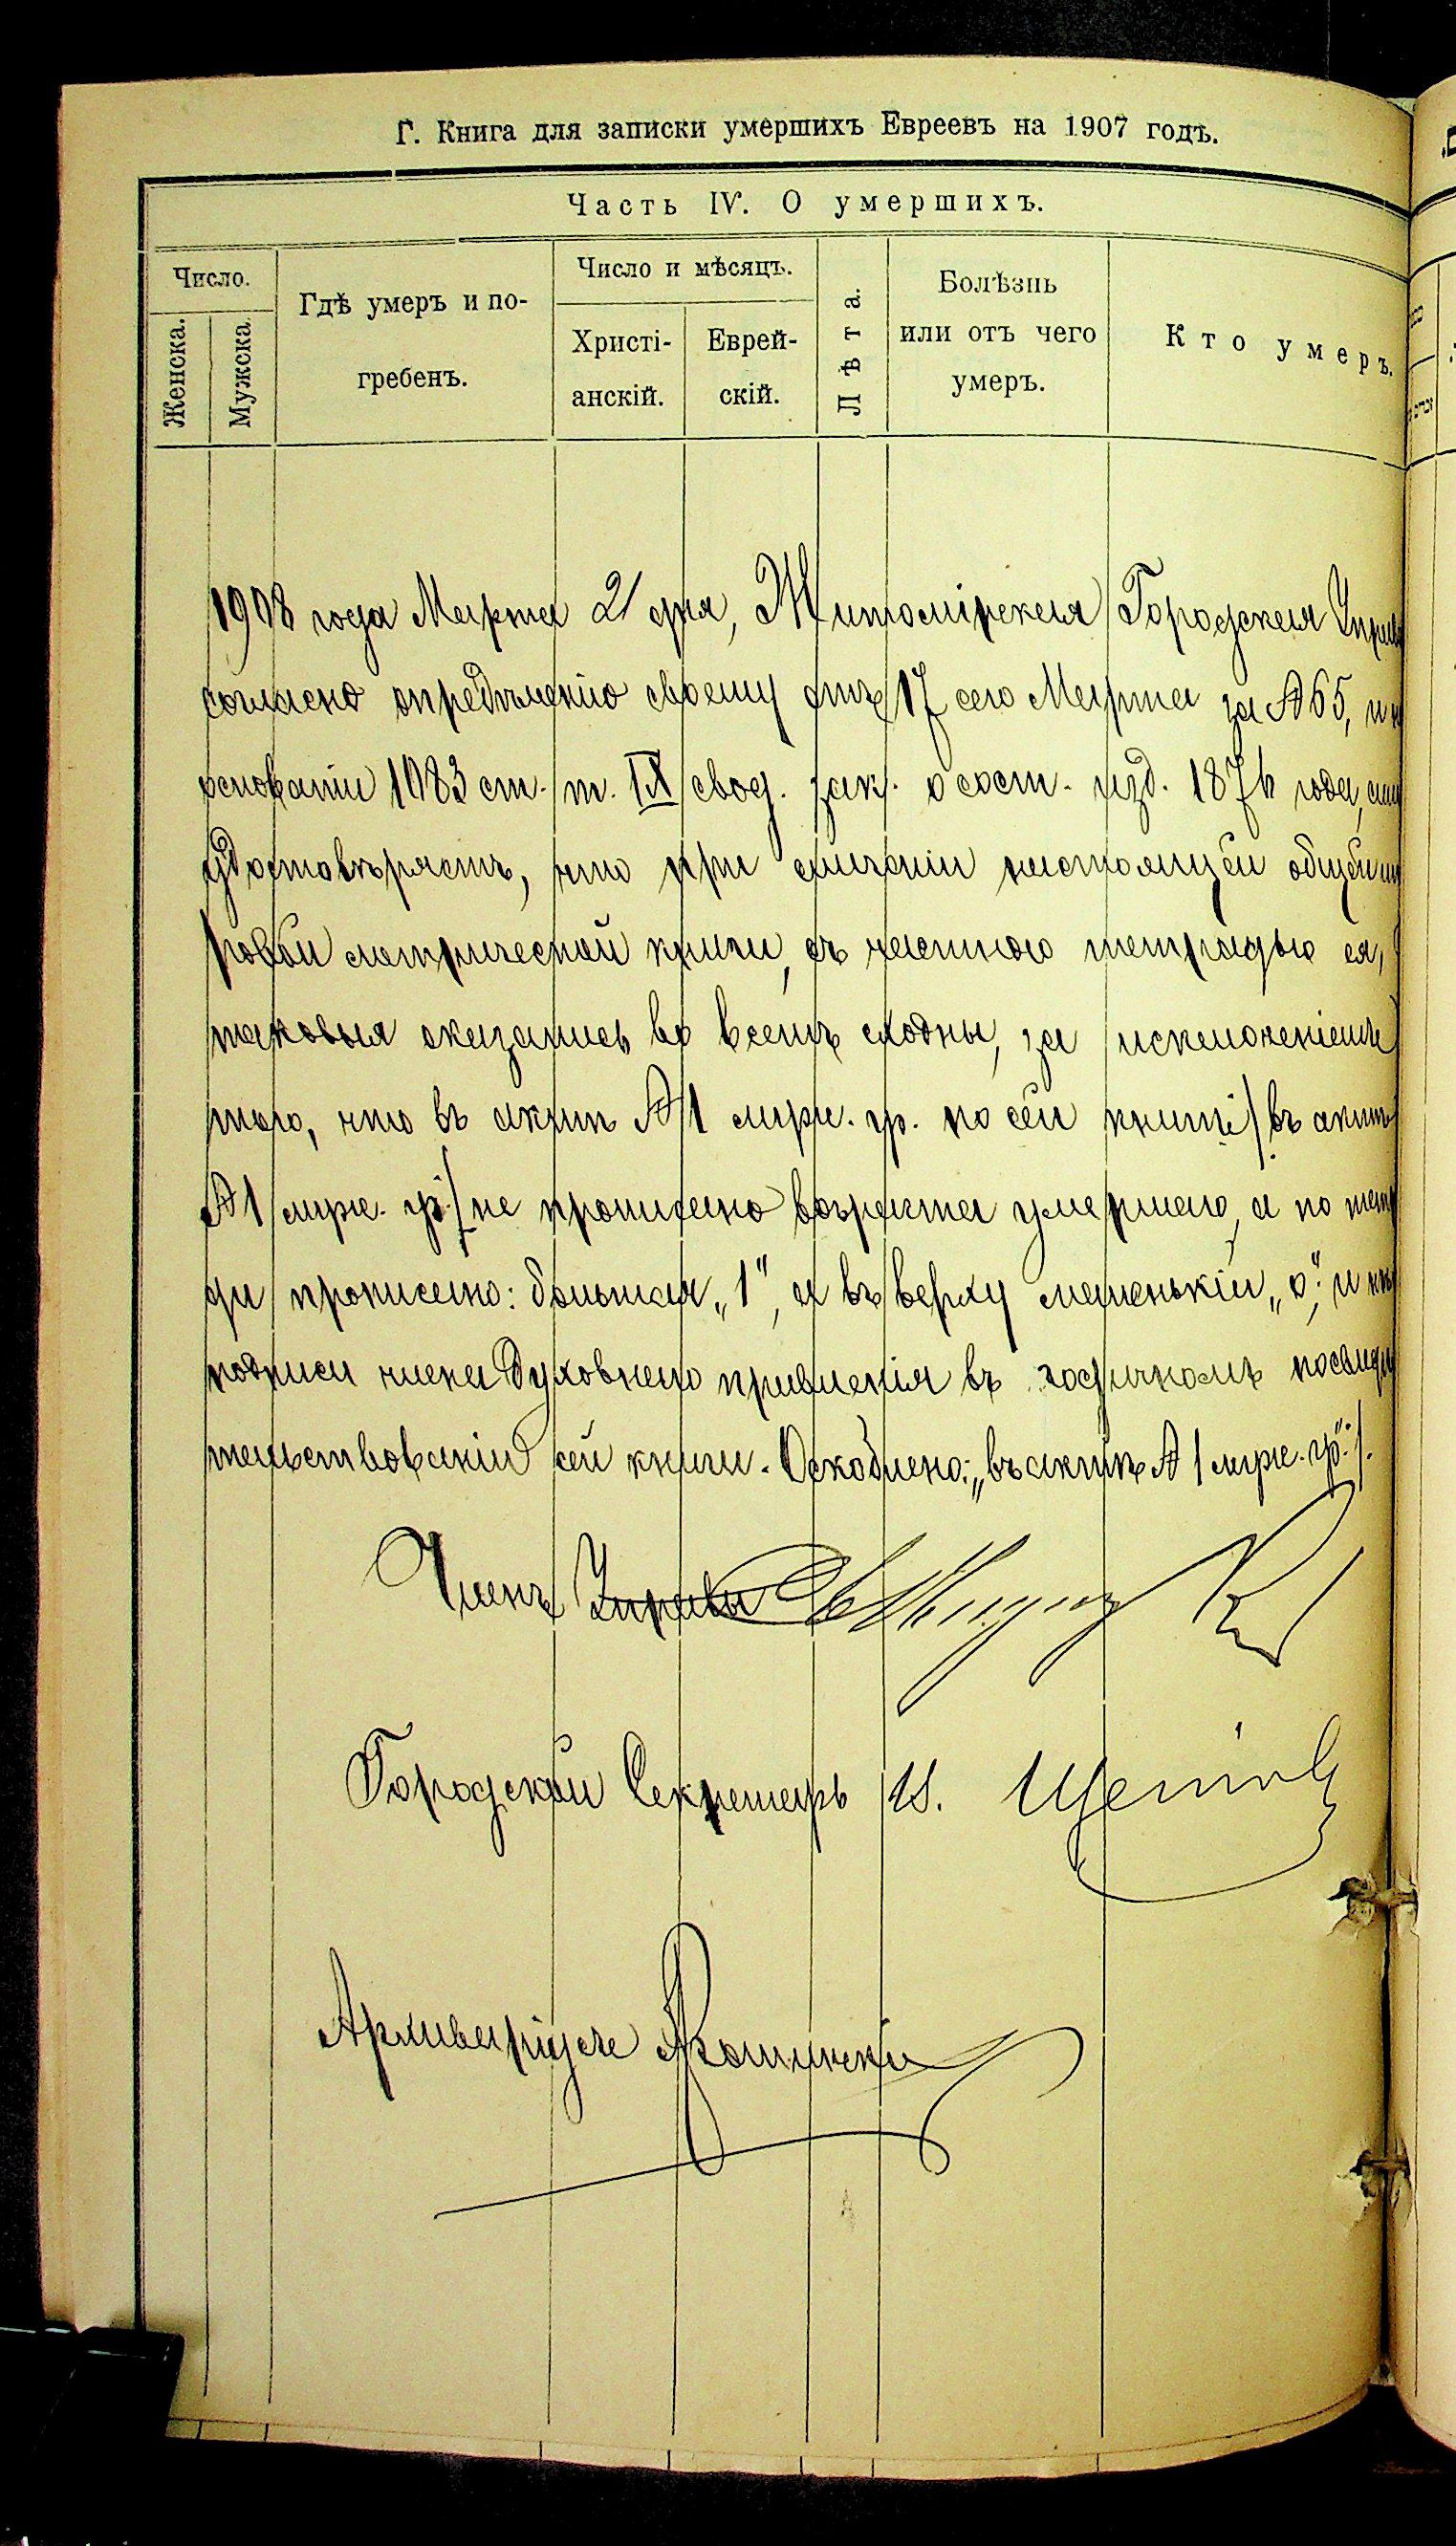 Г. Книга для записки умершихъ Евреевъ на 1907 годъ.
Часть IV. О умершихъ.
Число.
Женска.
Мужска.
Гдѣ умеръ и по-
гребенъ.
Число и мѣсяцъ.
Христі-
анскій.
Еврей-
скій.
Лѣта.
Болѣзнь
или отъ чего
умеръ.
Кто умеръ.
1908 года Марта 21 дня, Житомірская Городская Управ
согласно опредѣленію своему отъ 17 сего Марта за № 65, и н
основаніи 1083 ст. т. IX свод. зак. о сост. изд. 1876 года, сим
удостовѣряетъ, что при сличеніи настоящей общей шн
ровой метрической книги, съ частною тетрадью ея,
таковыя оказались во всемъ сходны, за исключеніемъ
того, что въ актѣ № 1 муж. гр. по сей книгѣ/въ актѣ
№ 1 муж. гр./не прописано возраста умершаго, а по тетр
ди прописано: большая „1", а въ верху маленькій „о"; и нѣ
подписи члена Духовнаго правленія въ годичномъ посвидѣ
тельствованіи сей книги. Оскоблено: „въ актѣ № 1 муж. гр."/.
Членъ Управы
Городской Секретарь И.
Архиваріусъ